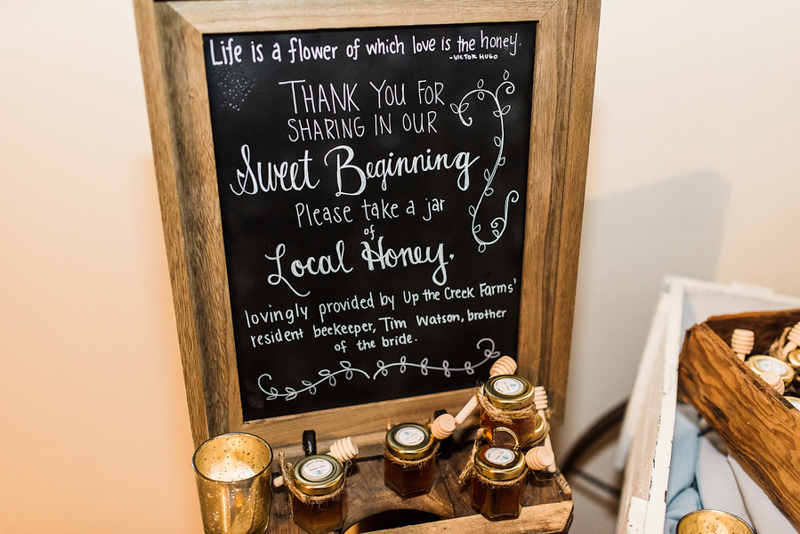 Life is a flower of which love is the honey.
-Victor Hugo
Thank you for
sharing in our
Sweet Beginning
Please take a jar
of
Local Honey.
lovingly provided by Up the Creek Farms'
resident beekeeper, Tim Watson, brother
of the bride.